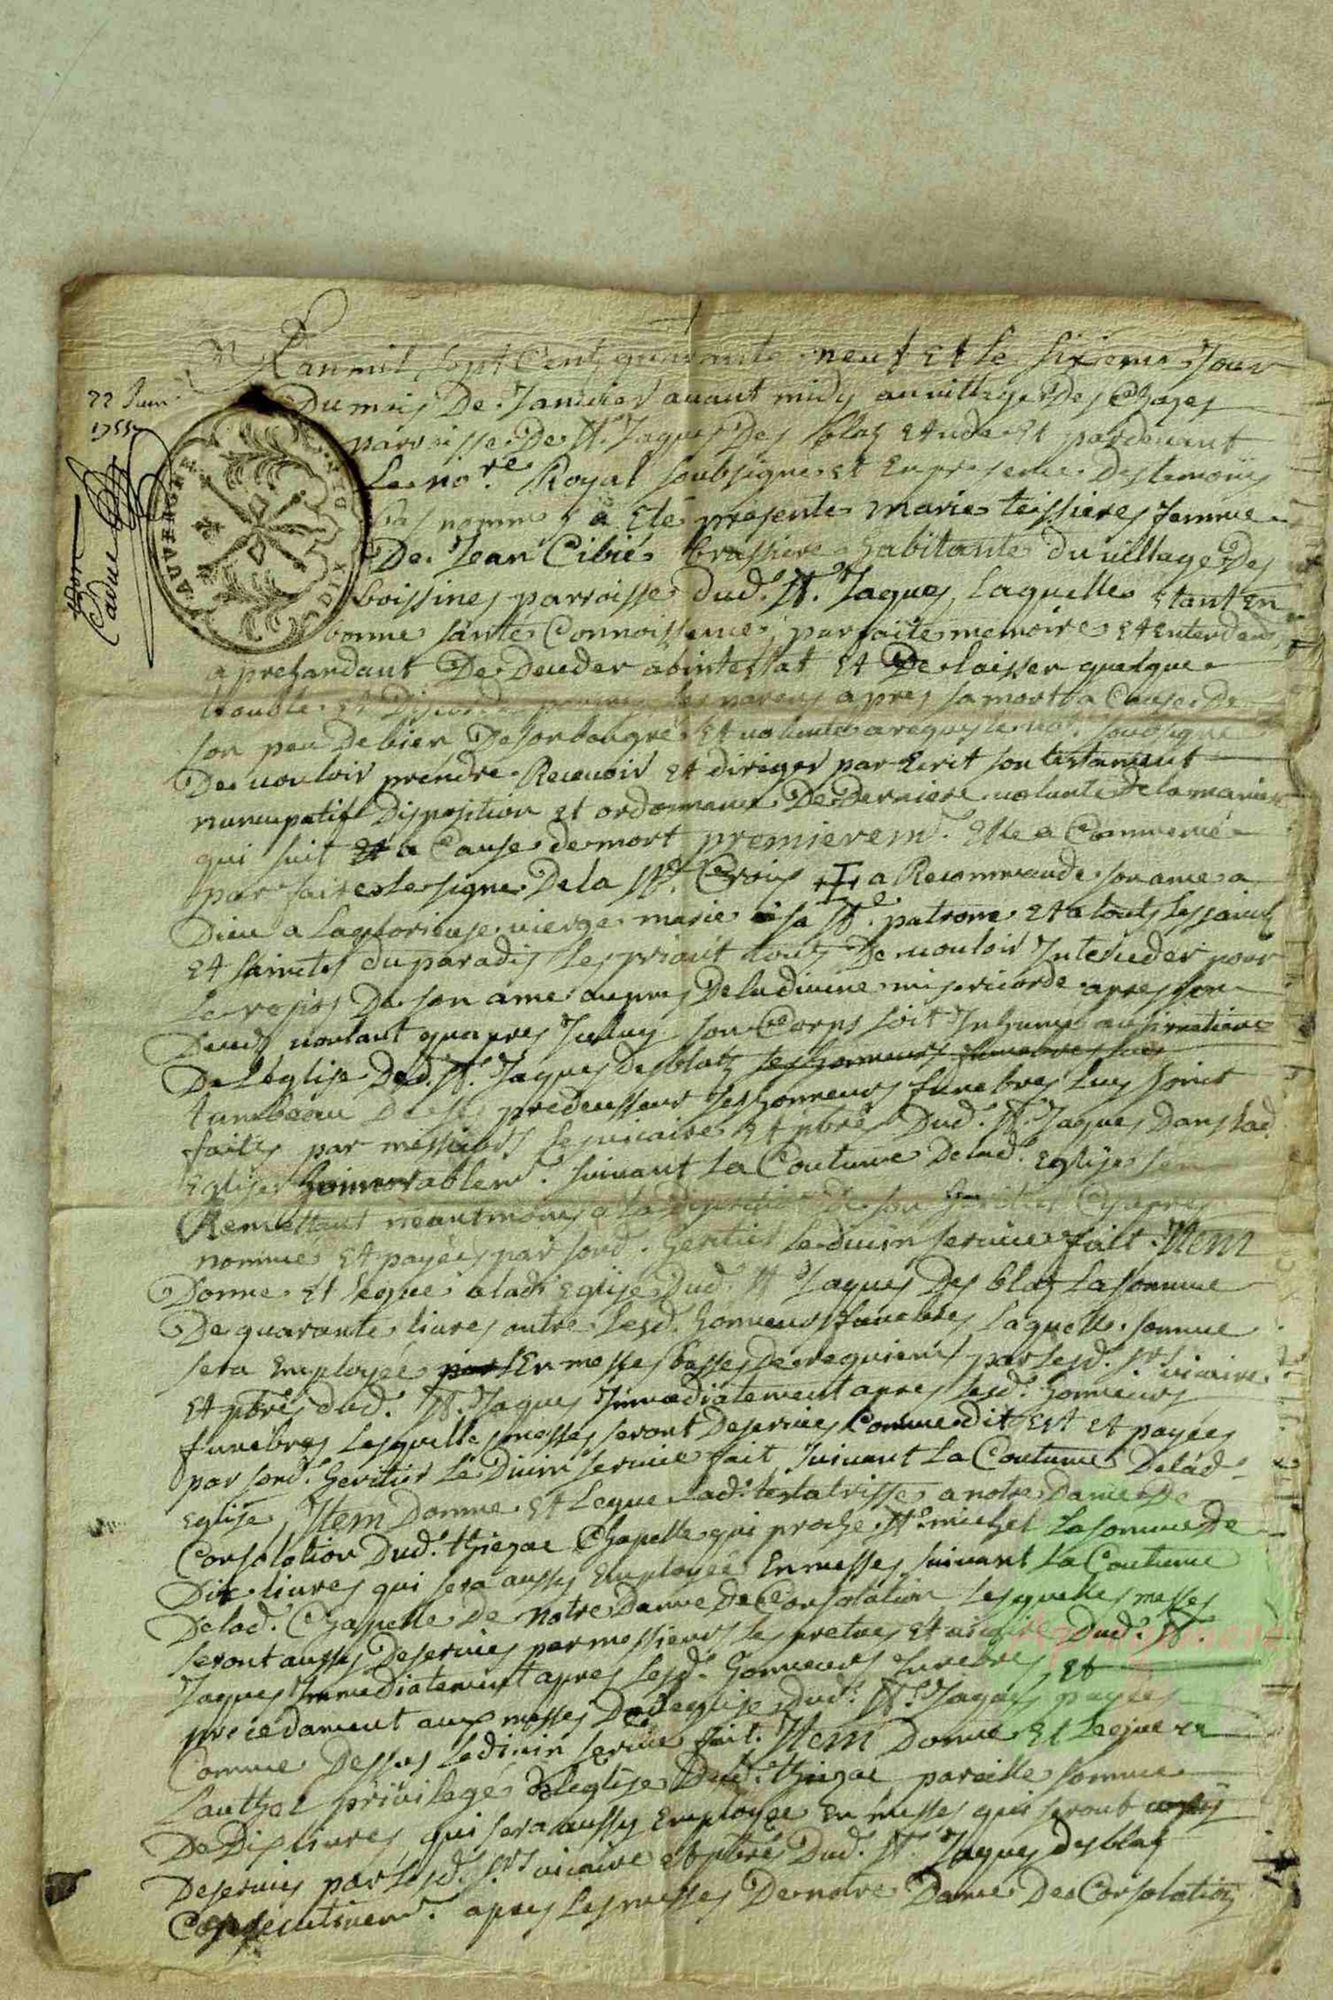 22 Juin
1755
AUVERGNE
DIX
Lan mil sept Cent quarante neuf et le sixieme Jour
Du mois De Janvier avant midy au village Des Chazes
parroisse De St. Jaques Des blatz et pardevant
Le nore. Royal soubsigne et En presence Des temoins
bas nommes a Eté presente marie teissieres femme
De Jean Cibié brassiere habitante du village Des
boissines parroisse dud. St. Jaques, Laquelle Etant En
bonne santé Connoissence, parfaite memoire et Entendem
aprehandant De Deceder abintestat et De laisser quelque
trouble et Discorde parmy ses parens apres sa mort a Cause De
son peu De bien De son bon gré et volonté a requis le nore. soubsigne
De vouloir prendre Recevoir et diriger par Ecrit son testament
nuncupatif Disposition et ordonnance De Derniere volonté De la maniere
qui suit a Cause de mort premierem. Elle a Commencé
par faire le signe De la Ste. Croix a Recommande son ame a
Dieu a La glorieuse vierge marie a sa Ste. patrone et a touts les saints
et saintes du paradis les priant touts De vouloir Interceder pour
Le repos De son ame aupres De la divine misericorde apres son
Deceds voulant qu'apres Iceluy son Corps soit Inhumé au simetiere
De L'églize Dud. St. Jaques Des blatz les honneurs funebres
tumbeau De ses predecesseurs les honneurs funebres Luy soint
faits par messieurs le vicaire et pbrés Dud. St. Jaques Dans lad.
Eglize honnorablem. suivant La Coutume De lad. Eglize sen
Remettant neautmoins a la disposition de son heritier Cy apres
nomme et payées par sond. heritier le divin service fait. Item
Donne et legue a lad. Eglize Dud. St. Jaques Des blatz La somme
De quarante livres outre Lesd. honneurs funebres Laquelle somme
sera Employée En messes basses De requiems par Lesd. Srs. vicaire
et pbrés dud. St. Jaques Immediatement apres lesd. honneurs
funebres Lesquelles messes seront Deservies Comme dit Est et payées
par sond. heritier Le Divin service fait suivant La Coutume De lad.
Eglize, Item Donne et Legue lad. testatrisse a notre Dame De
Consolation Dud. thiezac Chapelle qui proche St. michel La somme De
Dix livres qui sera aussy Employée En messes suivant La Coutume
De lad. Chappelle De notre Dame De Consolation Lesquelles messes
seront aussy Deservies par messieurs les pretres et vicaire Dud. St.
Jaques Immediatement apres lesd. honneurs funebres et
precedament aux messes De Leglize dud. St. Jaques payées
Comme Dessus le divin service fait. Item Donne et Legue a
Lauthel privilegé De leglize Dud. thiezac pareille somme
De Dix livres qui sera aussy Employée En messes qui seront
Deservies par Lesd. Srs. vicaire et pbrés Dud. St. Jaques des blatz
Consecutivem. apres Les messes De notre Dame De Consolation